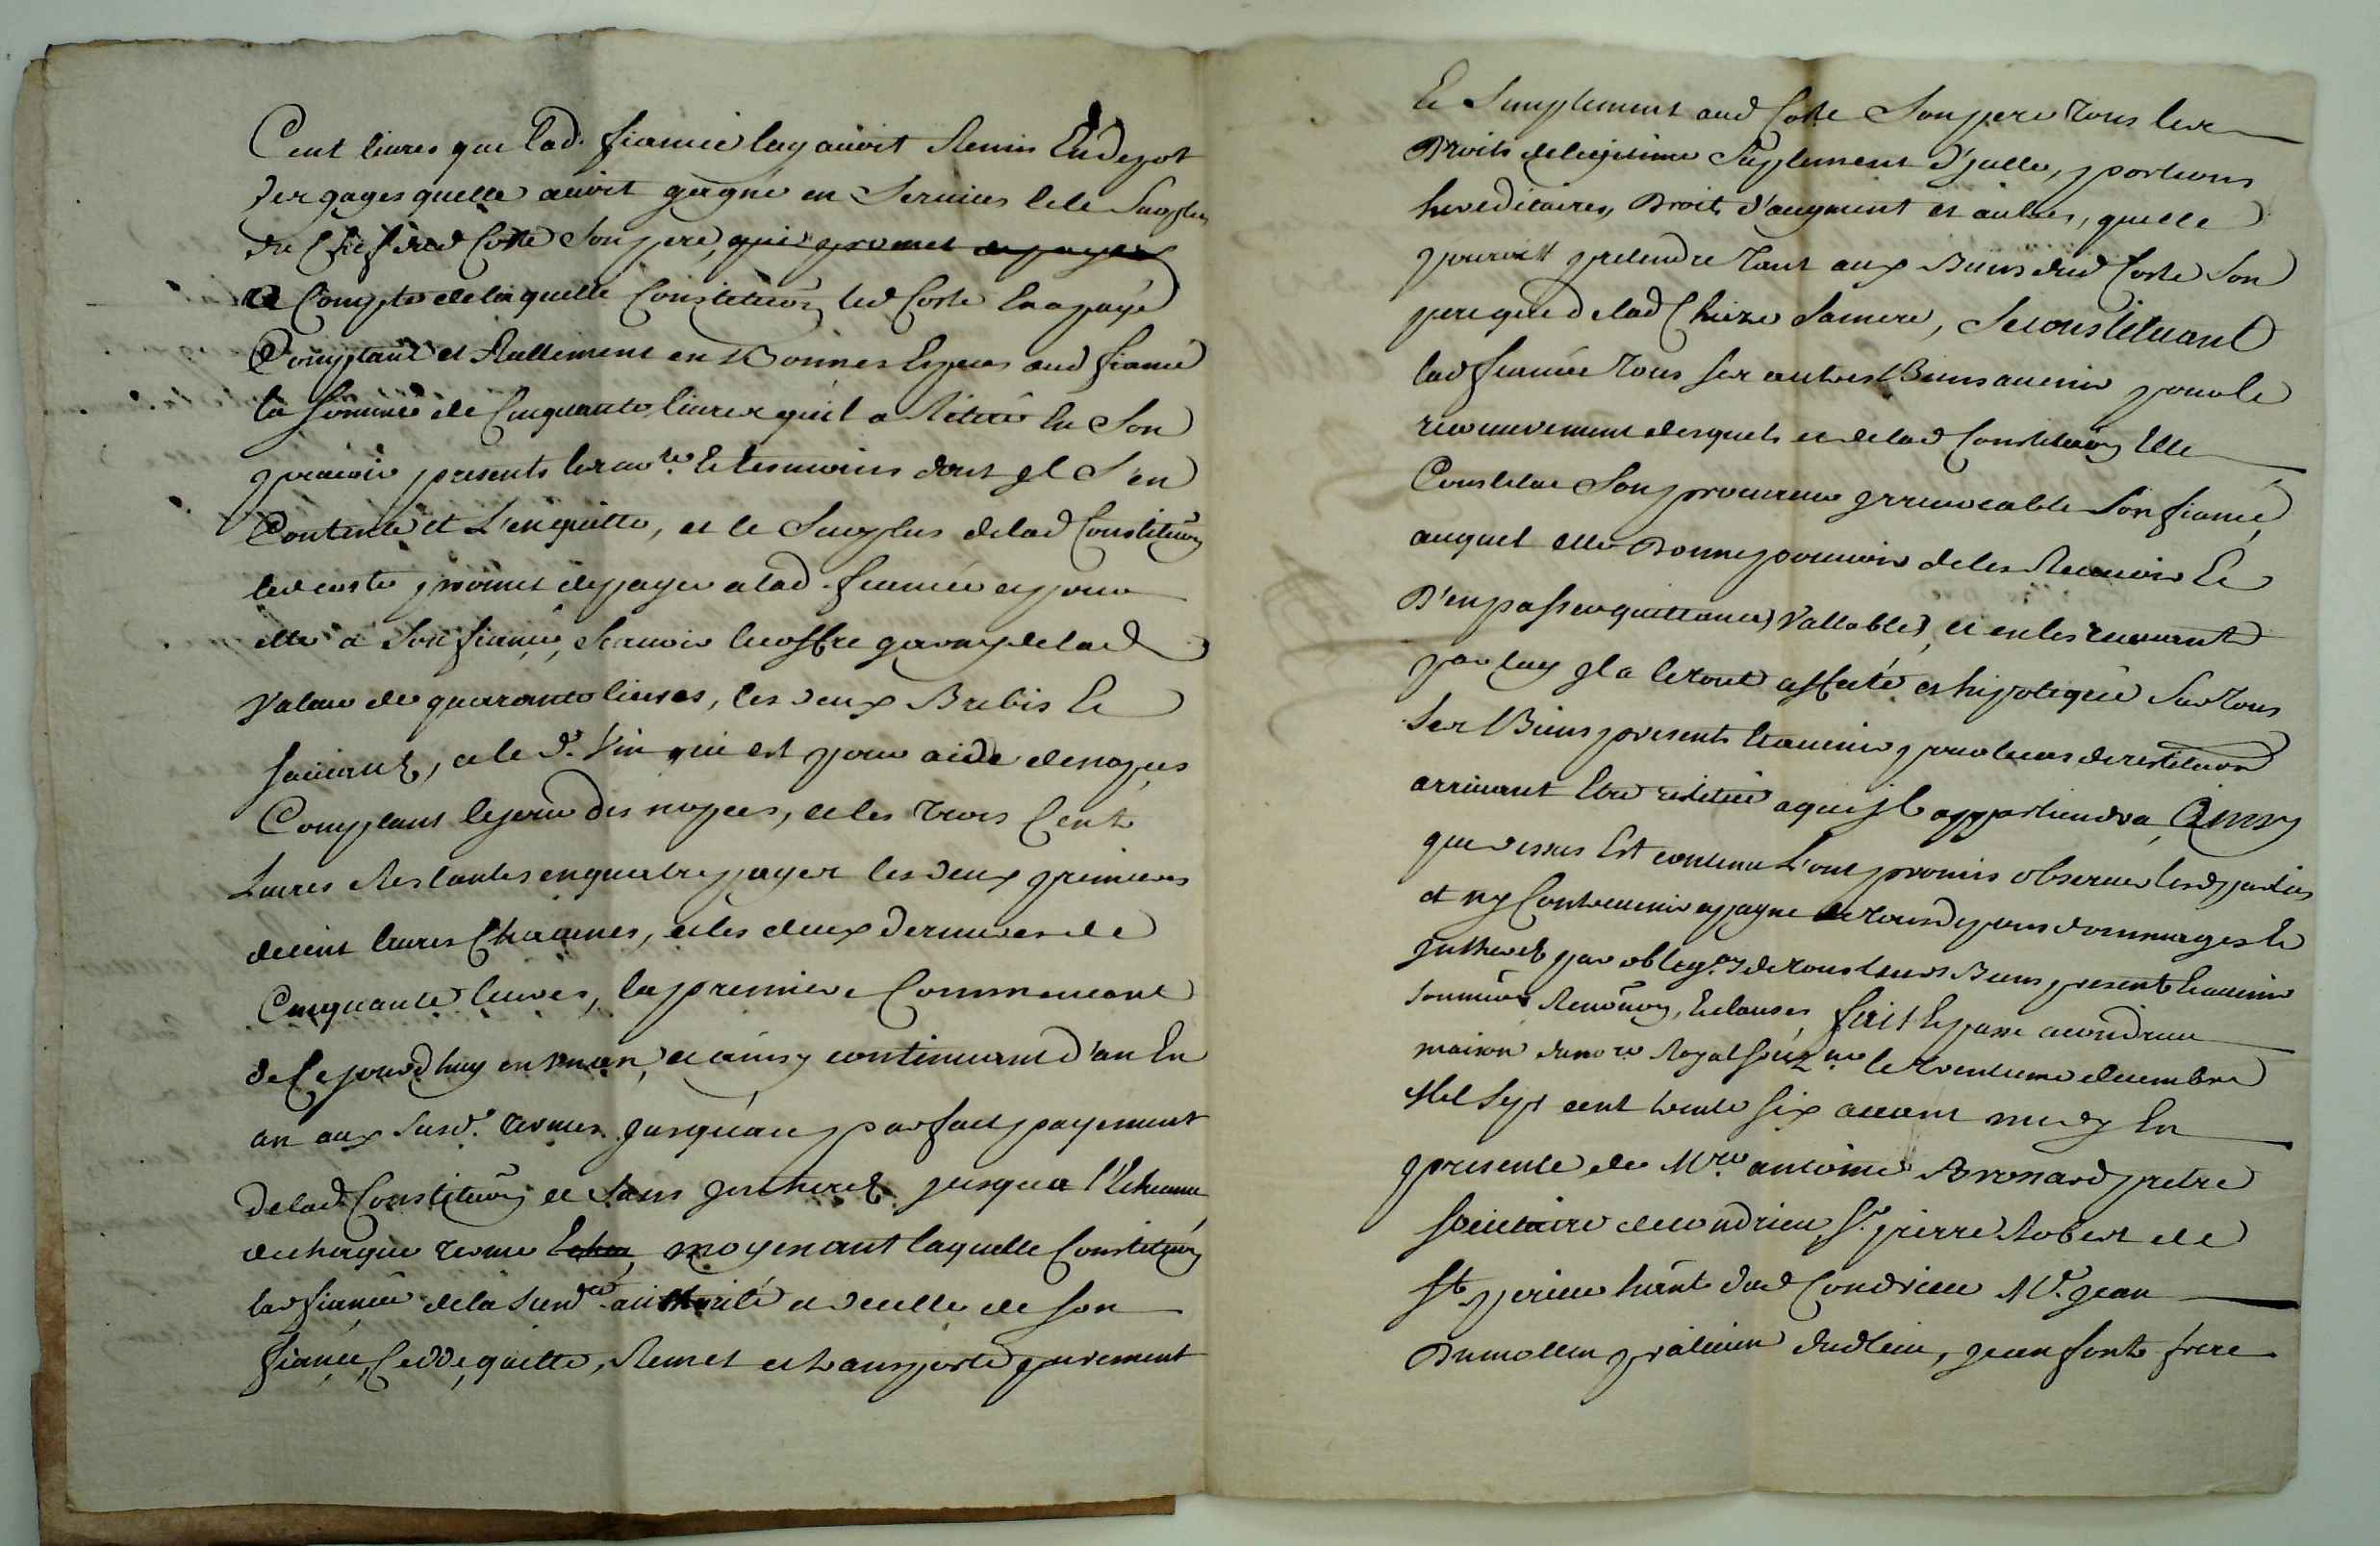 Cent livres que lad. fiancée luy avoit Remis En depot
des gages quelle avoit gagné en Services & le Surplus
du Chef dud Coste Son pere, qui promet de payer
A Compte de laquelle Constitution led Coste En a payé
Comptant et Réellement en Bonnes Especes aud fiancé
la Somme de Cinquante livres quil a Retiré En Son
pouvoir presents les nore. & tesmoins dont Il S'en
Contente et L'en quitte, et le Surplus de lad Constitution
led coste promet de payer a lad. fiancée et pour
elle a Son fiancé, Scavoir le coffre garny de lad
valeur de quarante livres, les deux Brebis &
suivants, et le d. Vin qui est pour aide de nopces
Comptant le jour des nopces, et les trois Cents
Livres Restantes en quatre payes les deux premieres
de cent livres Chacunes, et les deux dernieres de
Cinquante livres, la premiere Commencant
de Ce jourdhuy en un an, et ainsy continuant d'an En
an aux susd. termes jusqu'au parfait payement
de lad Constitution et Sans Interest jusqua l'Echeance
de chaque terme Echu, moyenant laquelle Constitution
lad fiancée de la Susd authorité et de celle de son
fiancé, Cedde, quitte, Remet et transporte purement
& Simplement aud Coste Son pere tous les
Droits de legitime Suplement d'Icelle, portions
hereditaires, Droits d'augment et autres, quelle
pouroit pretendre tant aux Biens dud Coste Son
pere que de lad Chieze Sa mere, Se constituant
lad fiancée tous ses autres Biens avenir pour le
recouvrement desquels et de lad Constitution Elle
Constitue Son procureur Irrevocable Son fiancé,
auquel elle Donne pouvoir de les Recevoir &
D'en passer quittances Vallables, et en les recevant
par luy Il a le tout affecté et hipotequé Sur tous
Ses Biens presents & avenir pour le cas de restitution
arrivant Etre restitué a qui Il appartiendra, Ainsy
que dessus Est contenu L'ont promis observer lesd parties
et ny Contrevenir a payne de tous depens dommages &
Interests par oblig.on de tous leurs Biens presents & avenir
Soumissions Renonciation, & clauses, fait & passé a Condrieu
maison du nore Royal souz.ne le trentieme decembre
Mil Sept cent trente six avant midy En
presence de Mre antoine Bronard pretre
Societaire de Condrieu, Sr. pierre Robert de
St pierre hant dud Condrieu Mr. Jean
Dumollin praticien dud lieu, Jean font frere